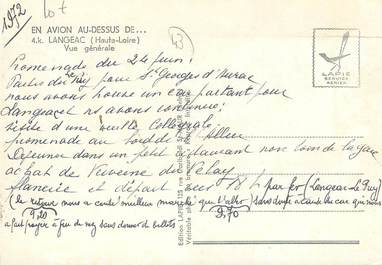 1972
lot
43
EN AVION AU-DESSUS DE...
4.k. LANGEAC (Haute-Loire)
Vue générale
LAPIE
SERVICE
AERIEN
Promenade du 24 juin.
Partis du Puy pour St Georges d'Aurac
nous avons trouvé un car partant pour
Langeac et ns avons continué;
visite d'une vieille Collégiale,
promenade au bord de l'Allier
Déjeuner dans un petit restaurant non loin de la gare
achat de Verveine du Velay
flânerie et départ vers 18 h par fer (Langeac-Le Puy)
(le retour nous a coûté meilleur marché que l'aller sans doute à cause du car que nous
9,20
9,70
a fait payer à peu de sans donner de billets